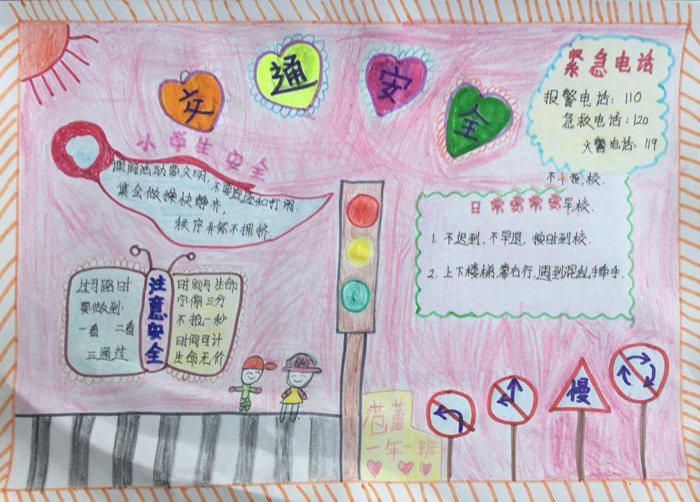 交通安全
紧急电话
报警电话：110
急救电话：120
火警电话：119
小学生安全
课间活动要文明，不要追逐和打闹
集会做操快静齐，
秩序井然不拥挤
1. 不迟到，不早退，按时到校．
2. 上下楼梯，靠右行，遇到混乱，手牵手．
过马路时
要做到：
一看 二看
三通过
注意安全
时间与生命
宁停三分
不抢一秒
时间可计
生命无价
一年一班
慢